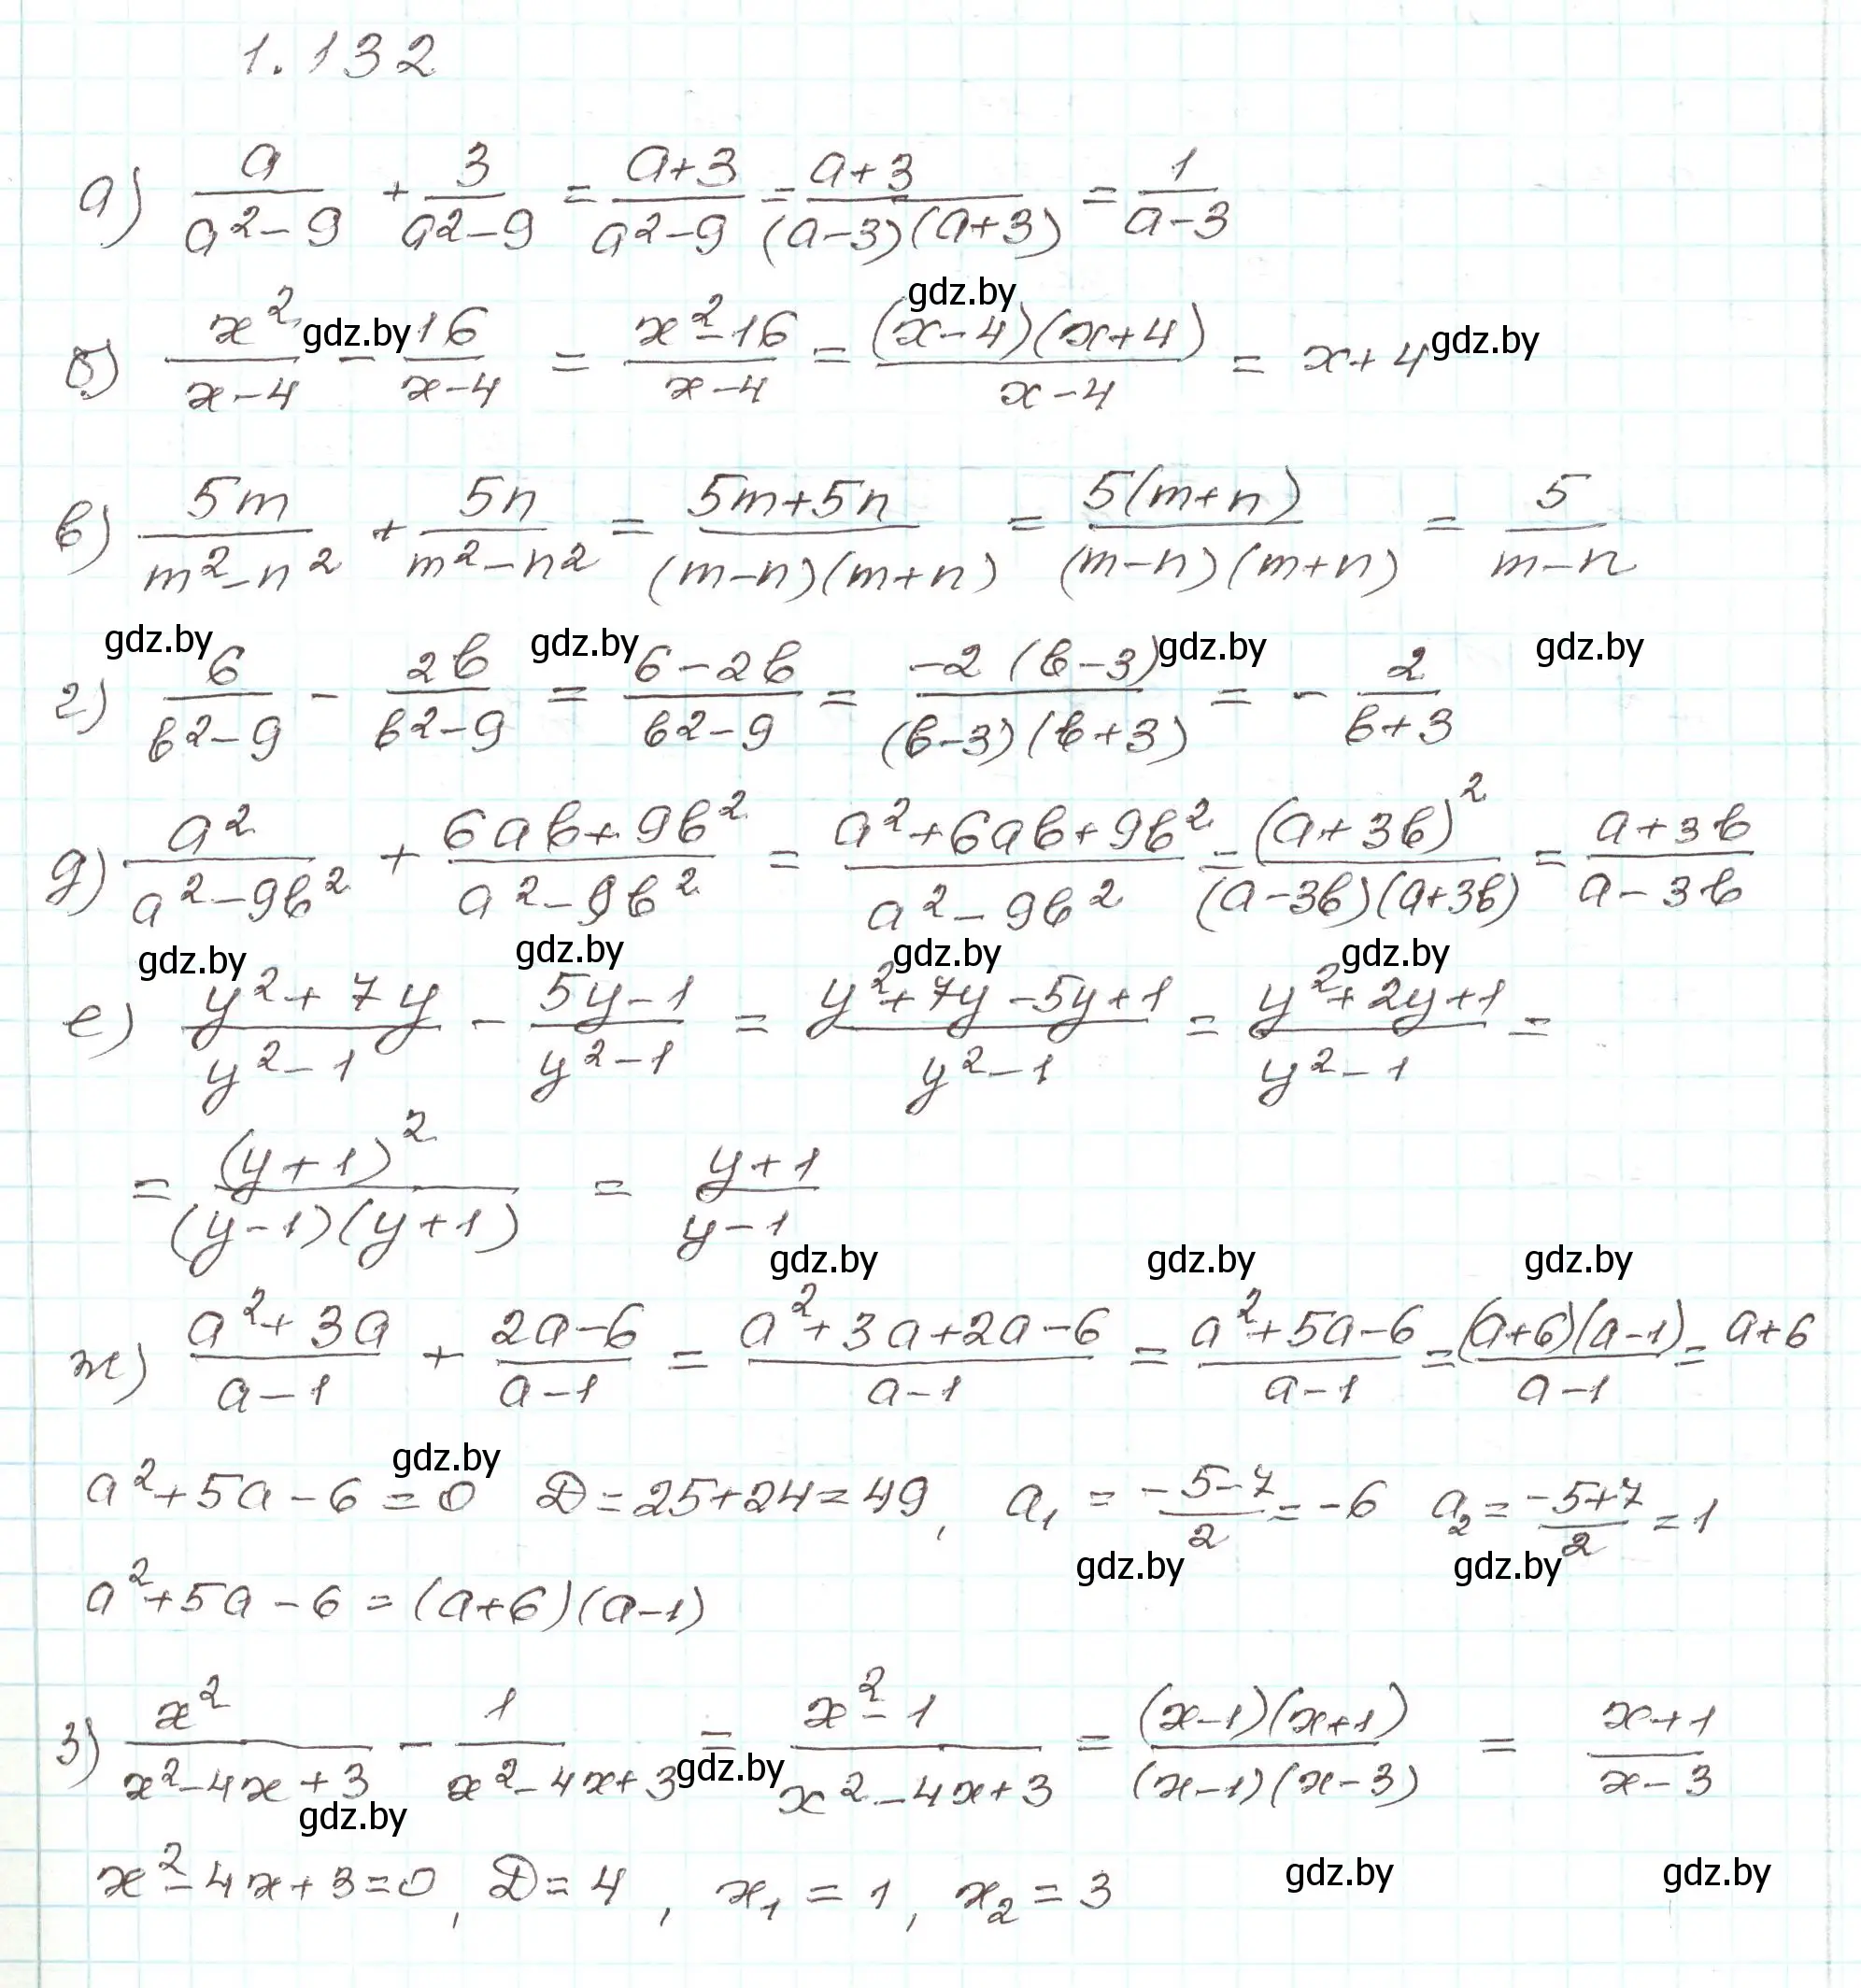 1.132
а) a/(a²-9) + 3/(a²-9) = (a+3)/(a²-9) = (a+3)/((a-3)(a+3)) = 1/(a-3)
gdz.by
б) x²/(x-4) - 16/(x-4) = (x²-16)/(x-4) = ((x-4)(x+4))/(x-4) = x+4
gdz.by gdz.by
в) 5m/(m²-n²) + 5n/(m²-n²) = (5m+5n)/((m-n)(m+n)) = (5(m+n))/((m-n)(m+n)) = 5/(m-n)
gdz.by gdz.by gdz.by gdz.by
г) 6/(b²-9) - 2b/(b²-9) = (6-2b)/(b²-9) = (-2(b-3))/((b-3)(b+3)) = - 2/(b+3)
д) a²/(a²-9b²) + (6ab+9b²)/(a²-9b²) = (a²+6ab+9b²)/(a²-9b²) = (a+3b)²/((a-3b)(a+3b)) = (a+3b)/(a-3b)
gdz.by gdz.by gdz.by gdz.by
е) (y²+7y)/(y²-1) - (5y-1)/(y²-1) = (y²+7y-5y+1)/(y²-1) = (y²+2y+1)/(y²-1) =
= (y+1)²/((y-1)(y+1)) = (y+1)/(y-1)
gdz.by gdz.by gdz.by
ж) (a²+3a)/(a-1) + (2a-6)/(a-1) = (a²+3a+2a-6)/(a-1) = (a²+5a-6)/(a-1) = ((a+6)(a-1))/(a-1) = a+6
gdz.by
a²+5a-6=0 D=25+24=49, a₁ = (-5-7)/2 = -6 a₂ = (-5+7)/2 = 1
gdz.by gdz.by
a²+5a-6=(a+6)(a-1)
з) x²/(x²-4x+3) - 1/(x²-4x+3) = (x²-1)/(x²-4x+3) = ((x-1)(x+1))/((x-1)(x-3)) = (x+1)/(x-3)
gdz.by gdz.by
x²-4x+3=0, D=4, x₁=1, x₂=3
gdz.by gdz.by